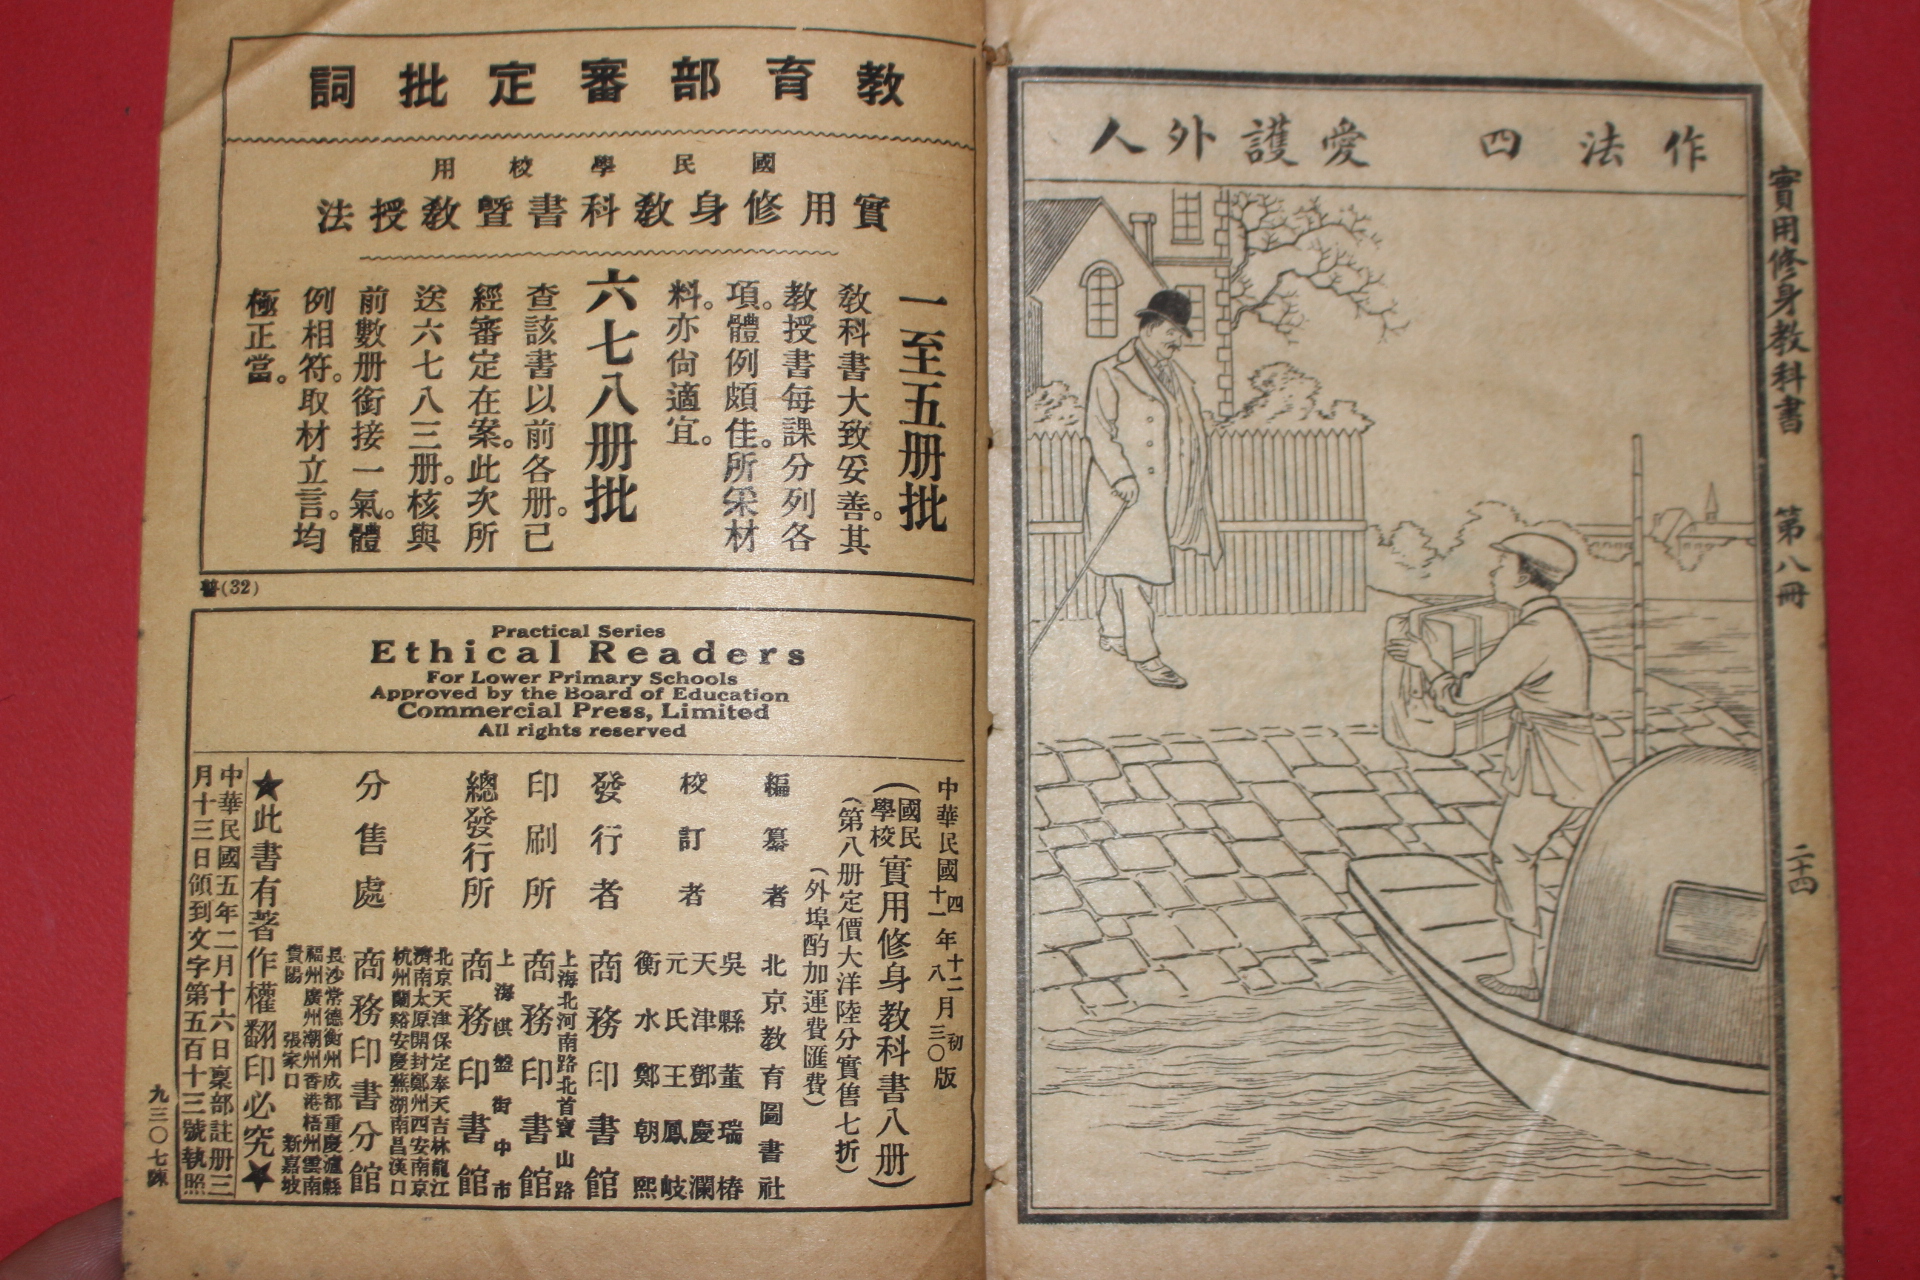 作法四 愛護外人
實用修身教科書 第八冊 二十四
教育部審定批詞
國民學校用
實用修身教科書暨教授法
一至五册批
教科書大致妥善。其
教授書每課分列各
項。體例頗佳。所采材
料。亦尙適宜。
六七八册批
查該書以前各册。已
經審定在案。此次所
送六七八三册。核與
前數册銜接一氣。體
例相符。取材立言。均
極正當。
(32)
Practical Series
Ethical Readers
For Lower Primary Schools
Approved by the Board of Education
Commercial Press, Limited
All rights reserved
中華民國四年十二月初版
十一年八月三〇版
(國民學校實用修身教科書八册)
(第八册定價大洋陸分實售七折)
(外埠酌加運費匯費)
編纂者 北京教育圖書社
校訂者 吳縣董瑞椿
天津鄧慶瀾
元氏王鳳岐
衡水鄭朝熙
發行者 商務印書館
印刷所 上海北河南路北首寶山路 商務印書館
總發行所 上海棋盤街中市 商務印書館
分售處 北京天津保定奉天吉林龍江
濟南太原開封鄭州西安南京
杭州蘭谿安慶蕪湖南昌漢口
商務印書分館
長沙常德衡州成都重慶瀘縣
福州廣州潮州香港梧州雲南
貴陽 張家口 新嘉坡
★此書有著作權翻印必究★
中華民國五年二月十六日稟部註册三
月十三日領到文字第五百十三號執照
九三〇七陳